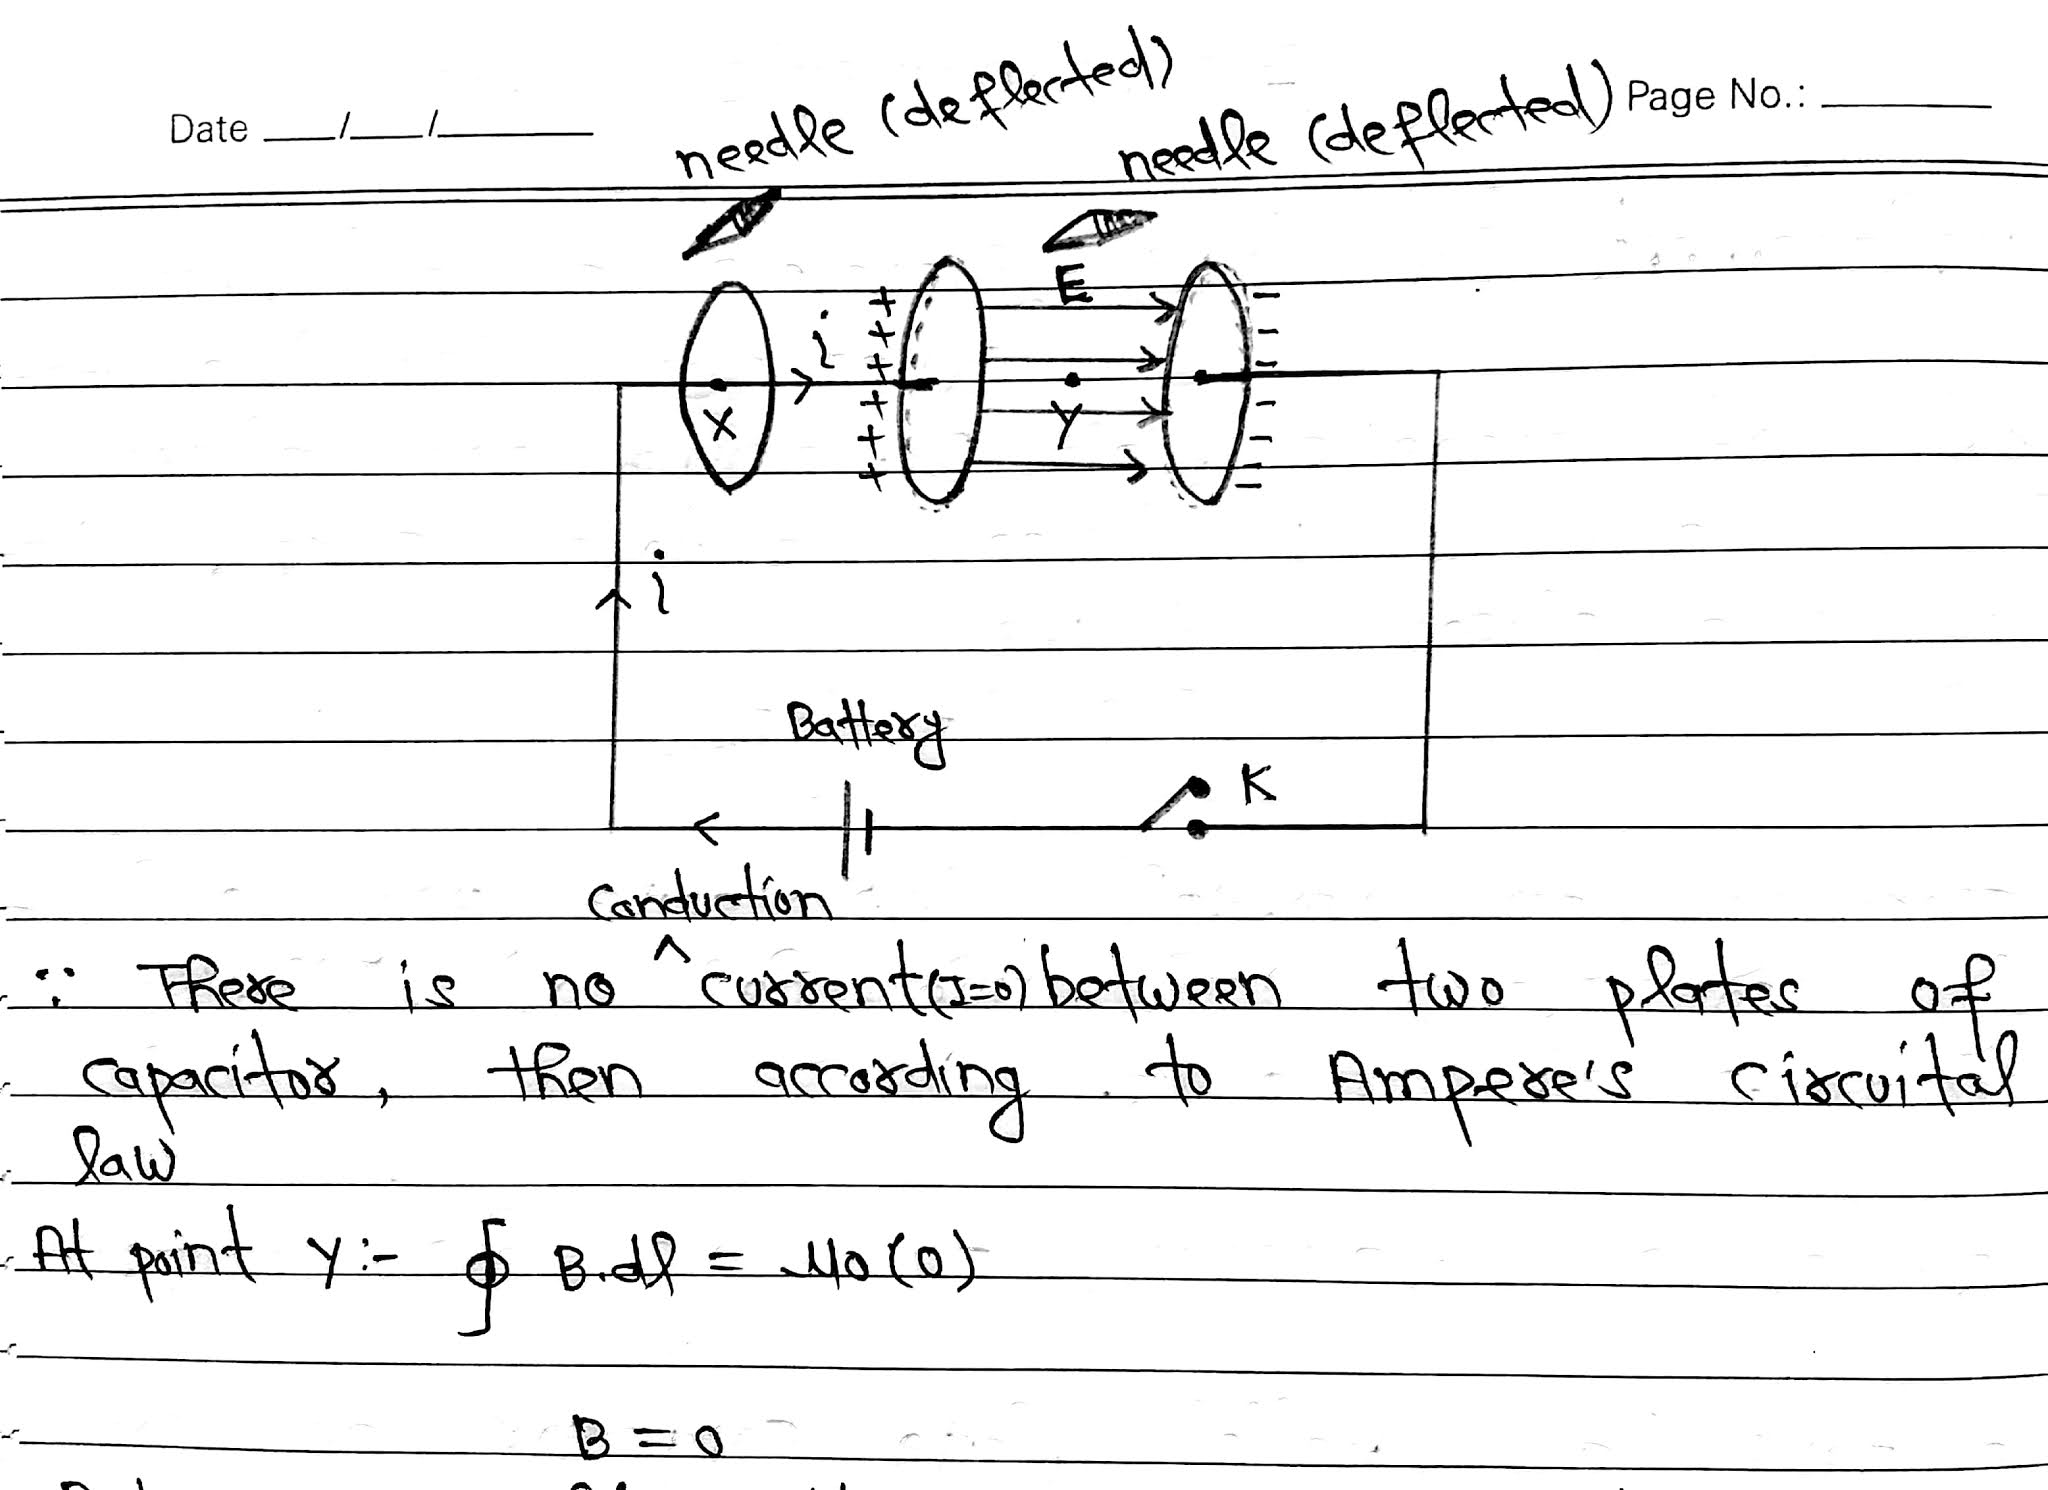 Date __/__/____
Page No.: ____
needle (deflected)
needle (deflected)
E
i
+ + + + + +
− − − − − −
X
Y
i
Battery
K
Conduction
∵ There is no ^ current (I=0) between two plates of
capacitor, then according to Ampere's circuital
law
At point Y:- ∮ B.dl = μ0 (0)
B = 0